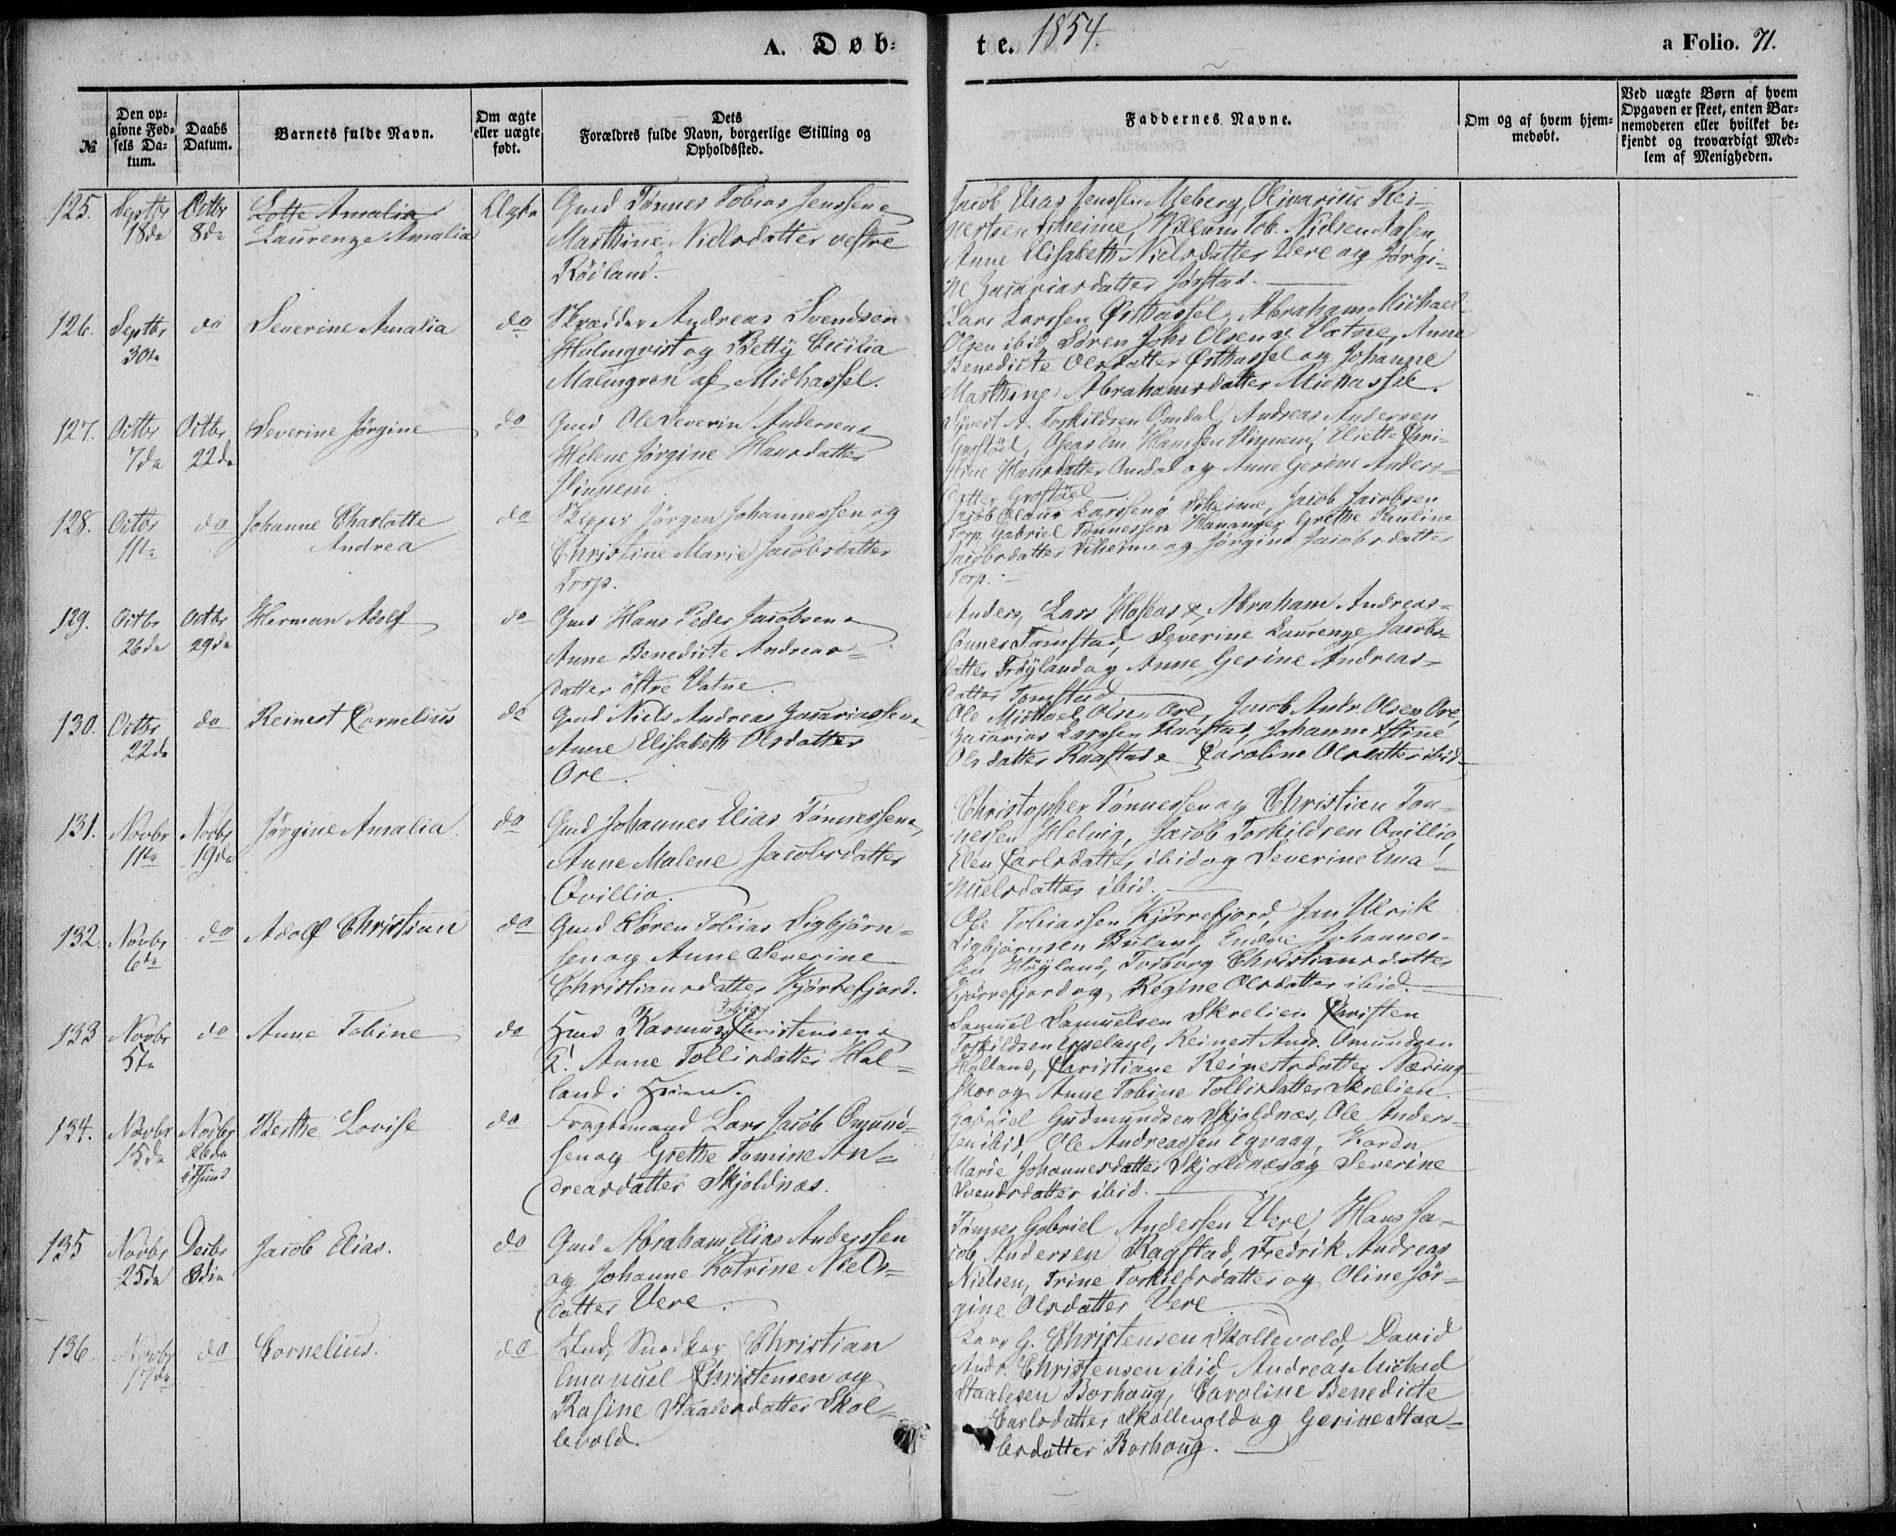 A. Døb-
te. 1854.
a Folio. 71.
№
Den op-
givne Fød-
sels Da-
tum.
Daabs
Datum.
Barnets fulde Navn.
Om ægte
eller uægte
født.
Dets
Forældres fulde Navn, borgerlige Stilling og
Opholdssted.
Faddernes Navne.
Om og af hvem hjem-
medøbt.
Ved uægte Børn af hvem
Opgaven er skeet, enten Bar-
nemoderen eller hvilket be-
kjendt og troværdigt Med-
lem af Menigheden.
125. Septbr 18de Octbr 8de
Lotte Amalia
Laurenze Amalia
Ægte
Gmd Tønnes Tobias Jenssen &
Marthine Nielsdatter vestre
Rødland.
Jacob Elias Jenssen Meberg, Olivarius Rei-
nertsen Viheime, Willum Tob. Nielsen Aasen,
Anne Elisabeth Nielsdatter Vere og Jørgi-
ne Zacariasdatter Jørstad.
126. Septbr 30te do
Severine Amalia
do
Skrædder Andreas Svendsen
Holmqvist og Betty Cecilia
Malmgren af Midhassel.
Lars Larssen Østhassel, Abraham Michael
Olsen ibid, Søren Johs Olsen v. Vatne, Anne
Benedicte Olsdatter Østhassel og Johanne
Marthine Abrahamsdatter Midhassel.
127. Octbr 7de Octbr 22de
Severine Jørgine
do
Gmd Ole Severin Andersen &
Helene Jørgine Hansdatter
Vinnem.
Sivert A. Torkildsen Omdal, Andreas Andersen
Grostøl, Hansen Vinnem, Eliette Chri-
stine Hansdatter Omdal og Anne Gerine Anders-
datter Grostøl
128. Octbr 11te do
Johanne Charlotte
Andrea
do
Skipper Jørgen Johannessen og
Christine Marie Jacobsdatter
Torp.
Jacob Olaus Larssen Viheime, Jacob Jacobsen
Torp, Gabriel Tønnessen Hananger, Grethe Pauline
Jacobsdatter Viheime og Jørgine Jacobsdatter
Torp.
129. Octbr 26de Octbr 29de
Herman Adolf
do
Gmd Hans Peder Jacobsen &
Anne Benedicte Andreas-
datter østre Vatne.
Anders, Lars Hoseas & Abraham Andreas-
sønner Tomstad, Severine Laurenze Jacobs-
datter Frøyland og Anne Gerine Andreas-
datter Tomstad.
130. Octbr 22de do
Reinert Cornelius
do
Gmd Niels Andreas Zacariassen &
Anne Elisabeth Olsdatter
Ore.
Ole Michael Olsen Ore, Jacob Andr. Olsen Ore,
Zacarias Larssen Raastad, Johanne Stine
Olsdatter Raastad & Caroline Olsdatter ibid.
131. Novbr 11te Novbr 19de
Jørgine Amalia.
do
Gmd Johannes Elias Tønnessen &
Anne Malene Jacobsdatter
Qvillio.
Christopher Tønnessen og Christian Tøn-
nessen Helvig, Jacob Torkildsen Qvillio,
Elen Carlsdatter ibid og Severine Ema-
nuelsdatter ibid.
132. Novbr 6te do
Adolf Christian
do
Gmd Søren Tobias Sigbjørn-
sen og Anne Severine
Christiansdatter Kjørrefjord.
Ole Tobiassen Kjørrefjord, Jan Ulrik
Sigbjørnsen Buland, Endre Johannes-
sen Høyland, Torborg Christiansdatter
Kjørrefjord og Regine Olsdatter ibid.
133 Novbr 5te do
Anne Tobine
do
Hmd Rasmus Tobias Christensen &
K! Anne Tollisdatter Hal-
land i
Samuel Samuelsen Skrelien Christen
Torkildsen Opseland, Reinert Andr. Omundsen
Halland, Christiane Reinertsdatter Næring-
skor og Anne Tobine Tollisdatter Skrelien.
134. Novbr 15de Novbr 26de
i Hjund
Berthe Lovise
do
Fragtemand Lars Jacob Omund-
sen og Grethe Tomine An-
dreasdatter Skjoldnæs.
Gabriel Gudmundsen Skjoldnæs, Ole Anders-
sen ibid, Ole Andreassen Egvaag, Karen
Marie Johannesdatter Skjoldnæs og Severine
Svendsdatter ibid.
135 Novbr 25de Decbr 3die
Jacob Elias.
do
Gmd Abraham Elias Anderssen
og Johanne Katrine Niels-
datter Vere.
Tønnes Gabriel Andersen Vere, Hans Ja-
cob Andersen Ragstad, Fredrik Andreas
Nielsen, Trine Torkildsdatter og Oline Jør-
gine Olsdatter Vere.
136. Novbr 17de do
Cornelius.
do
Hmd, Snedker Christian
Emanuel Christensen og
Rasine Staalesdatter Skol-
levold.
Lars G. Christensen Skollevold, David
Andr. Christensen ibid, Andreas Michael
Staalesen Borhaug, Caroline Benedicte
Carlsdatter Skollevold og Gerine Staa-
lesdatter Borhaug.